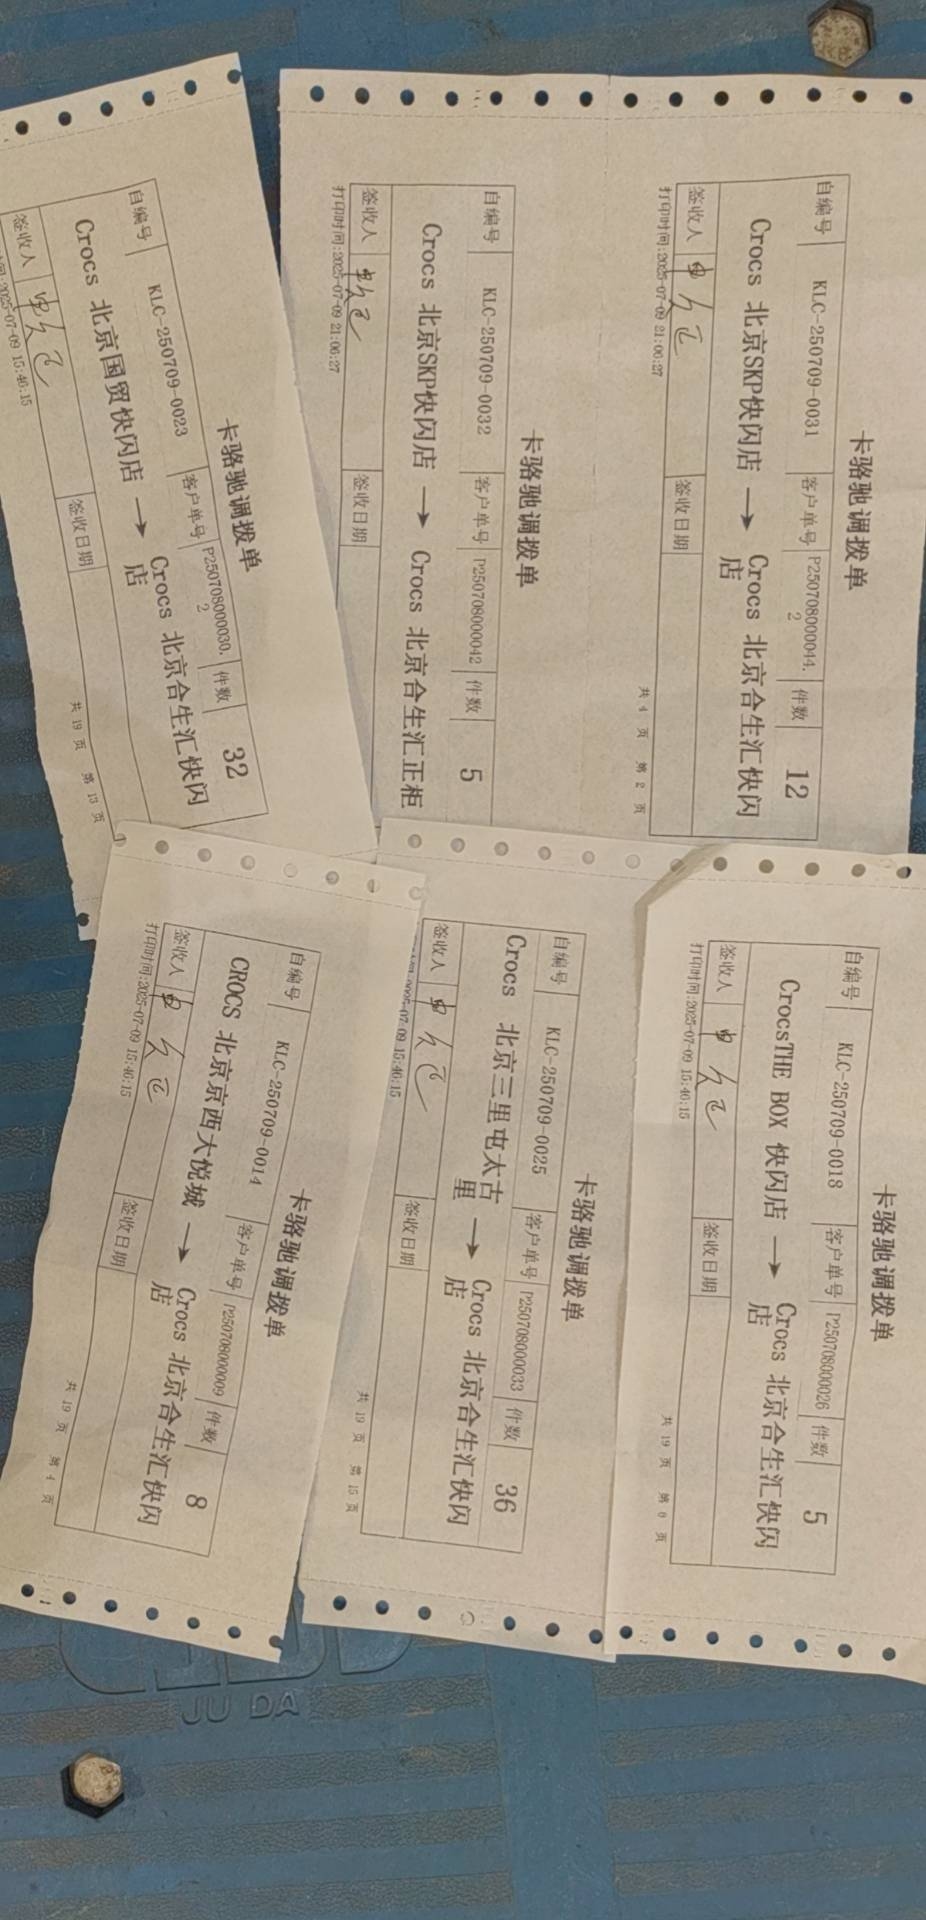 卡骆驰调拨单
自编号 KLC-250709-0031 客户单号 P250708000044.2 件数 12
Crocs 北京SKP快闪店 → Crocs 北京合生汇快闪店
签收人 签收日期
打印时间:2025-07-09 21:06:27 共 4 页 第 2 页
卡骆驰调拨单
自编号 KLC-250709-0032 客户单号 P250708000042 件数 5
Crocs 北京SKP快闪店 → Crocs 北京合生汇正柜
签收人 签收日期
打印时间:2025-07-09 21:06:27
卡骆驰调拨单
自编号 KLC-250709-0023 客户单号 P250708000030.2 件数 32
Crocs 北京国贸快闪店 → Crocs 北京合生汇快闪店
签收人 签收日期
时间:2025-07-09 15:46:15 共 19 页 第 13 页
卡骆驰调拨单
自编号 KLC-250709-0018 客户单号 P250708000026 件数 5
CrocsTHE BOX 快闪店 → Crocs 北京合生汇快闪店
签收人 签收日期
打印时间:2025-07-09 15:46:15 共 19 页 第 页
卡骆驰调拨单
自编号 KLC-250709-0025 客户单号 P250708000033 件数 36
Crocs 北京三里屯太古里 → Crocs 北京合生汇快闪店
签收人 签收日期
2025-07-09 15:46:15 共 19 页 第 15 页
卡骆驰调拨单
自编号 KLC-250709-0014 客户单号 P250708000009 件数 8
CROCS 北京京西大悦城 → Crocs 北京合生汇快闪店
签收人 签收日期
打印时间:2025-07-09 15:46:15 共 19 页 第 4 页
JU DA